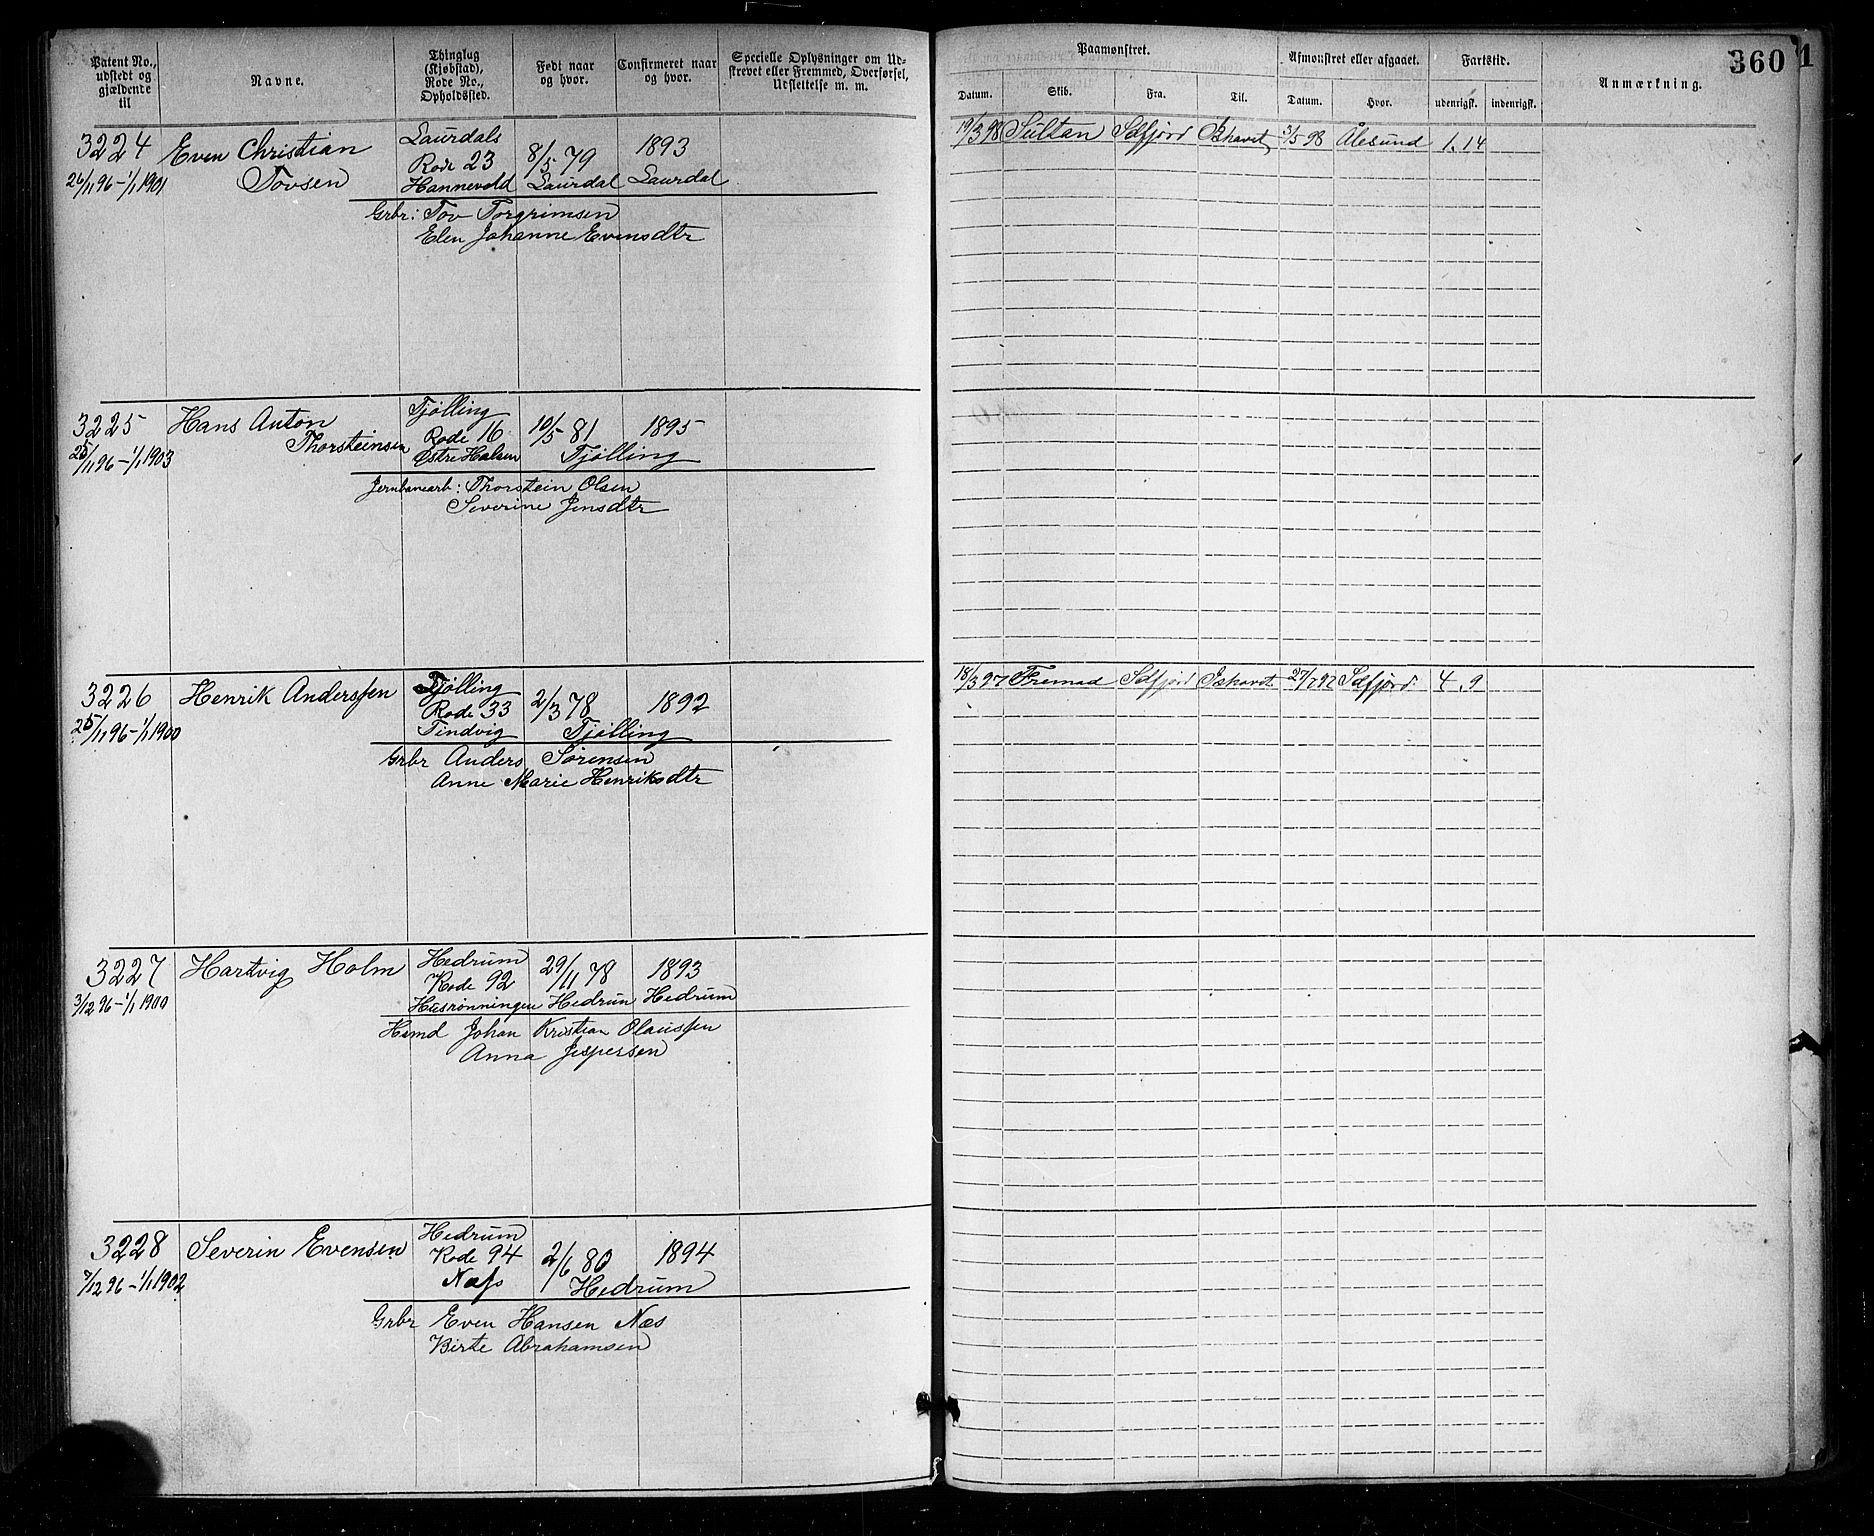 Patent No., udstedt og gjældende til
Navne.
Thinglag (Kjøbstad), Rode No., Opholdssted.
Født naar og hvor.
Confirmeret naar og hvor.
Specielle Oplysninger om Udskrevet eller Fremmed, Overførsel, Udslettelse m. m.
Paamønstret.
Datum.
Skib.
Fra.
Til.
Afmønstret eller afgaaet.
Datum.
Hvor.
Fartstid.
udenrigsk.
indenrigsk.
Anmærkning.
360
1
3224
26/11 96 – 1/1 1901
Even Christian
Tovsen
Laurdals
Rode 23
Hannevold
8/5 79
Laurdal
1893
Laurdal
Grbr: Tov Torgrimsen
Elen Johanne Evensdtr
19/3 98 Sultan Sdfjord Ishavet 3/5 98 Ålesund 1.14
3225
25/11 96 – 1/1 1903
Hans Anton
Thorsteinsen
Tjølling
Rode 16
Østre Halsen
10/5 81
1895
Tjølling
Jernbanearb: Thorstein Olsen
Severine Jensdtr
3226
25/11 96 – 1/1 1900
Henrik Anderssen
Tjølling
Rode 33
Tindvig
2/3 78
1892
Tjølling
Grbr Anders Sørensen
Anne Marie Henriksdtr
18/3 97 Fremad Sdfjord Ishavet 27/7 97 Sdfjord. 4.9
3227
3/12 96 – 1/1 1900
Hartvig Holm
Hedrum
Rode 92
Husrønningen
29/11 78
Hedrum
1893
Hedrum
Hsmd Johan Kristian Olaussen
Anna Jespersen
3228
7/12 96 – 1/1 1902
Severin Evensen
Hedrum
Rode 94
Næss
2/6 80
1894
Hedrum
Grbr Even Hansen Næs
Birte Abrahamsen